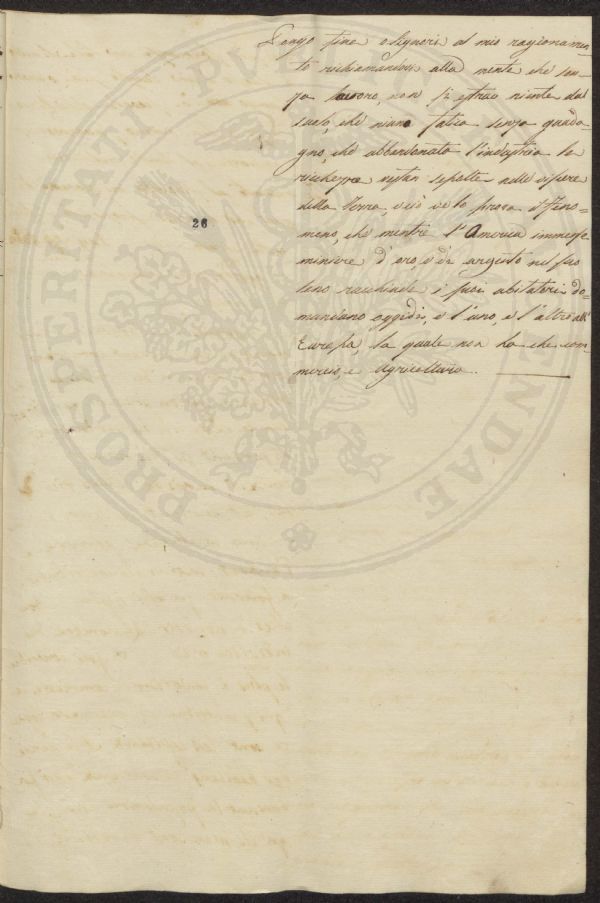 Pongo fine o Signori al mio ragionamen=
to richiamandovi alla mente che sen=
za lavoro, non si estrae niente dal
suolo, che niuno fatica senza guada=
gno, che abbandonata l'industria le
ricchezze restan sepolte nelle viscere
della Terra, e ciò ve lo prova il Feno=
meno, che mentre l'America immense
miniere d'oro, e di argento nel suo
seno racchiude i suoi abitatori do=
mandano oggidì, e l'uno, e l'altro all'
Europa, la quale non ha che com=
mercio, e Agricoltura.
26
PROSPERITATI PUBLICAE AUGENDAE